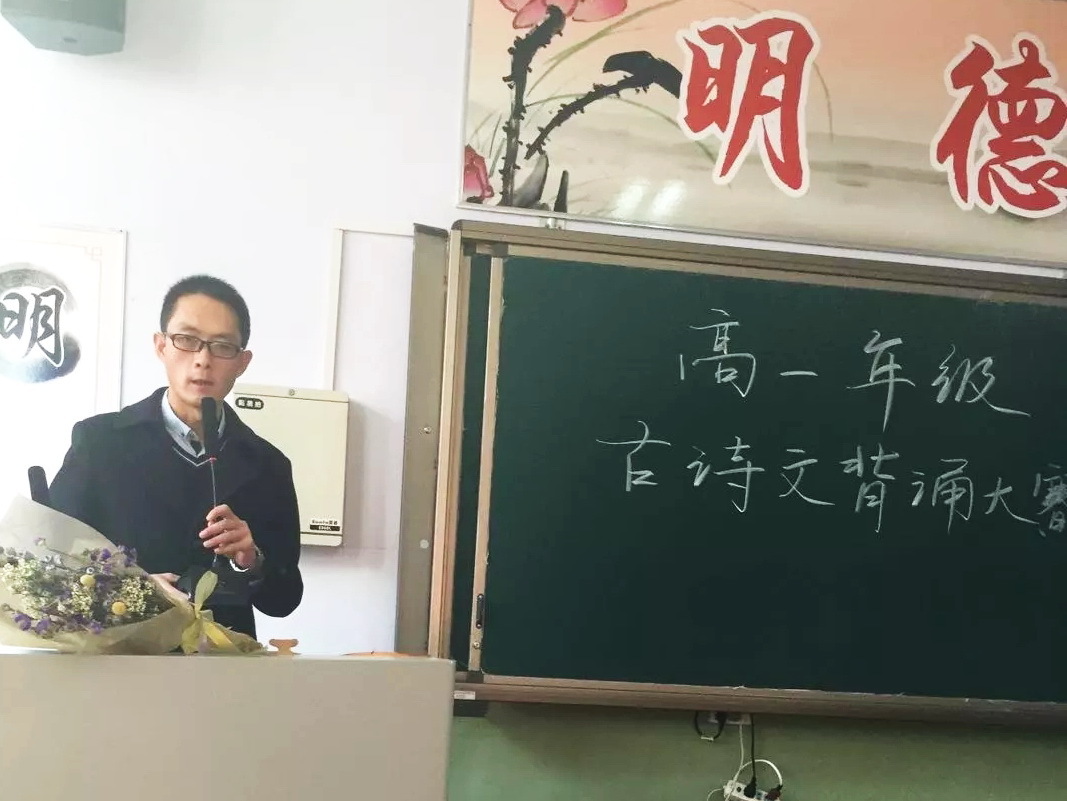 明德
明
高一年级
古诗文背诵大赛